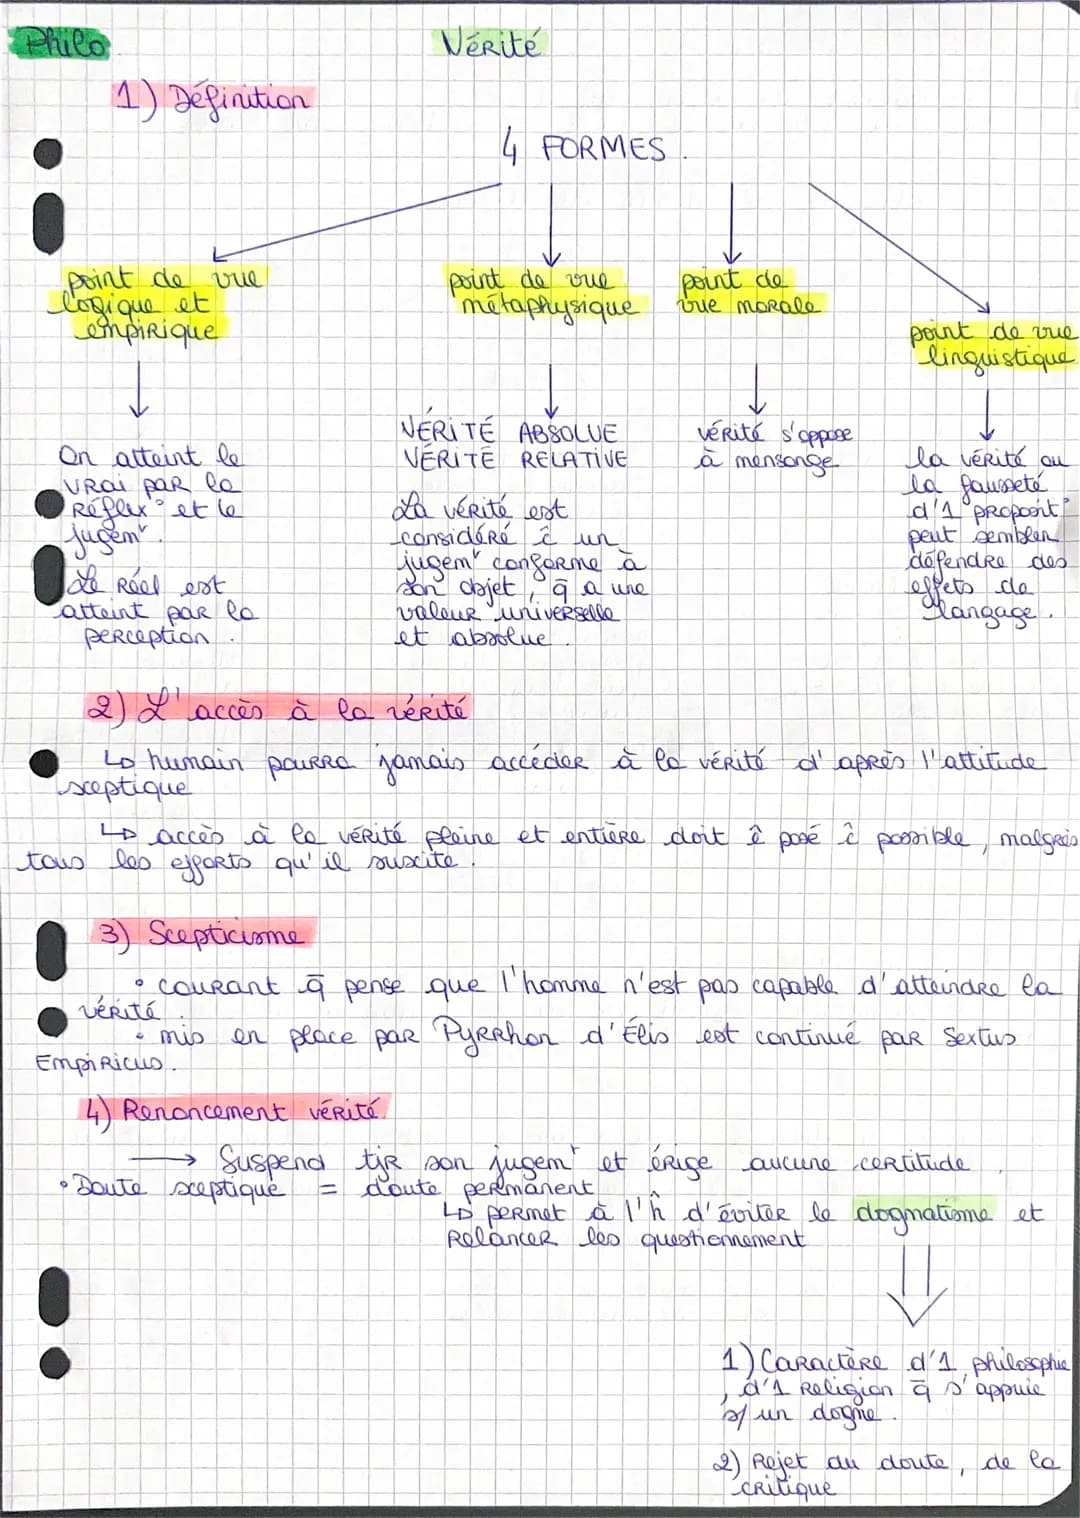 Philo
Vérité
1) Définition
4 FORMES.
point de vue
logique et
empirique
On atteint le
vrai par la
réflex° et le
jugemt.
Le réel est
atteint par la
perception.
point de vue
métaphysique
VÉRITÉ ABSOLUE
VÉRITÉ RELATIVE
La vérité est
considéré c̄ un
jugemt conforme à
son objet, q̄ a une
valeur universelle
et absolue.
point de
vue morale
vérité s'oppose
à mensonge
point de vue
linguistique
la vérité ou
la fausseté
d'1 proposit°
peut sembler
défendre des
effets de
langage.
2) L'accès à la vérité
↳ humain pourra jamais accéder à la vérité d'après l'attitude
sceptique
↳ accès à la vérité pleine et entière doit ê posé c̄ possible, malgrés
tous les efforts qu'il suscite.
3) Scepticisme
• courant q̄ pense que l'homme n'est pas capable d'atteindre la
vérité.
• mis en place par Pyrrhon d'Élis est continué par Sextus
Empiricus.
4) Renoncement vérité.
→ Suspend tjr son jugemt et érige aucune certitude.
• Doute sceptique = doute permanent
↳ permet à l'ĥ d'éviter le dogmatisme et
relancer les questionnement
1) Caractère d'1 philosophie
, d'1 religion q̄ s'appuie
s/ un dogme.
2) Rejet du doute, de la
critique